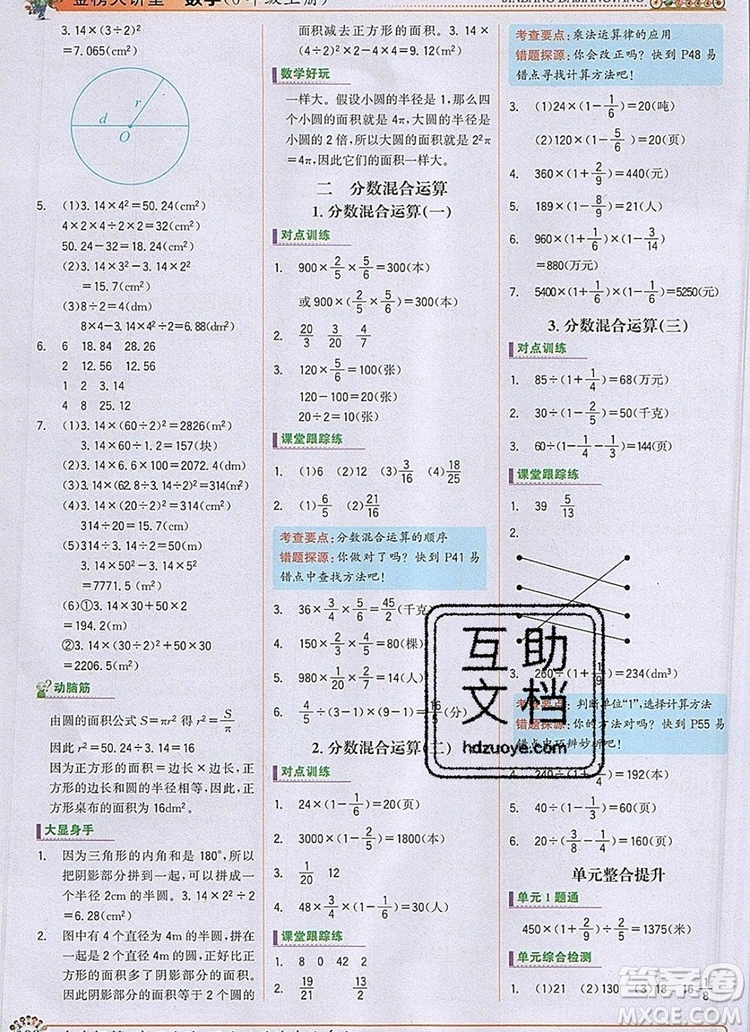 金榜大讲堂 数学(6年级上册)
3.14×(3÷2)²
=7.065(cm²)
r
d
O
5. (1)3.14×4²=50.24(cm²)
4×2×4÷2×2=32(cm²)
50.24-32=18.24(cm²)
(2)3.14×3²-3.14×2²
=15.7(cm²)
(3)8÷2=4(dm)
8×4-3.14×4²÷2=6.88(dm²)
6. 6 18.84 28.26
2 12.56 12.56
1 2 3.14
4 8 25.12
7. (1)3.14×(60÷2)²=2826(m²)
3.14×60÷1.2=157(块)
(2)3.14×6.6×100=2072.4(dm)
(3)3.14×(62.8÷3.14÷2)²=314(m²)
(4)3.14×(20÷2)²=314(m²)
314÷20=15.7(cm)
(5)314÷2÷3.14=50(m)
3.14×50²-314÷4
=7771.5(m²)
(6)①3.14×30+50×2
=194.2(m)
②3.14×(30÷2)²+30×50
=2206.5(m²)
动脑筋
由圆的面积公式 S=πr² 得 r²=S/π
因此 r²=50.24÷3.14=16
因为正方形的面积=边长×边长=
圆的半径×半径,所以这个正方
形桌布的面积为 16dm²。
大显身手
1. 因为三角形的内角和是 180°,所以
把阴影部分移到一起,拼成一个
半径 2cm 的半圆。3.14×2²÷2
=6.28(cm²)
2. 图中有 4 个直径为 4m 的半圆,拼在
一起是 2 个直径为 4m 的圆,而正方
形减去了阴影部分的面积。阴影
部分的面积为 2 个直径 4m 的圆的
面积减去正方形的面积。3.14×
(4÷2)²×2-4×4=9.12(m²)
数学好玩
一样大。假设小圆的半径是 1,那么四
个小圆的面积就是 4π,大圆的半径是
小圆的 2 倍,所以大圆的面积就是 2²π
=4π,因此它们的面积一样大。
二 分数混合运算
1. 分数混合运算(一)
对点训练
1. 900×2/5×5/6=300(本)
或 900×(2/5×5/6)=300(本)
2. 20/3 20/3 4/7
3. 120×5/6=100(张)
120-100=20(张)
20÷2=10(张)
课堂跟踪练
1. (1)6 (2)12 (3)3/16 (4)18/25
2. (1)6/5 (2)21/16
考查要点:分数混合运算的顺序
错题探源:你做对了吗? 快到 P41 易
错点中查找方法吧!
3. 36×3/4×5/6=45/2(千克)
4. 150×4/5×2/3=80(棵)
5. 980×1/20×2/7=14(人)
6. 4/5÷(5-3)×(9-1)=16/5(分)
2. 分数混合运算(二)
对点训练
1. 24×(1-1/6)=20(页)
2. 3000×(1-2/5)=1800(本)
3. 1/20 12
4. 36×(1-1/6)=30(人)
课堂跟踪练
1. 8 0 42 2
2. 19/21 13/2
考查要点:乘法运算律的应用
错题探源:你会改正吗? 快到 P48 易
错点寻找计算方法吧!
3. (1)24×(1-1/6)=20(吨)
(2)120×(1-5/6)=20(页)
4. 360×(1+2/9)=440(人)
5. 189×(1-8/9)=21(人)
6. 960×(1+1/6-1/4)
=880(万元)
7. 5400×(1+1/6)×(1-1/6)=5250(元)
3. 分数混合运算(三)
对点训练
1. 85÷(1+1/4)=68(万元)
2. 30÷(1-2/5)=50(千克)
3. 60÷(1-7/12)=144(页)
课堂跟踪练
1. 39 5/13
2.
3. 260÷(1+1/9)=234(dm³)
考查要点:判断单位“1”,选择计算方法
错题探源:你的方法对吗? 快到 P55 易
错点中环辨妙析吧!
4. 240÷(1+1/4)=192(本)
5. 20÷(1-1/2)=40(只)
6. 20÷(3/8-1/4)=160(页)
单元整合提升
单元 1 题通
450×(1+2/9)÷2/5=1375(米)
单元综合检测
1. (1)21 (2)130 (3)18
互助文档
hdzuoye.com
答案圈
MXQE.COM